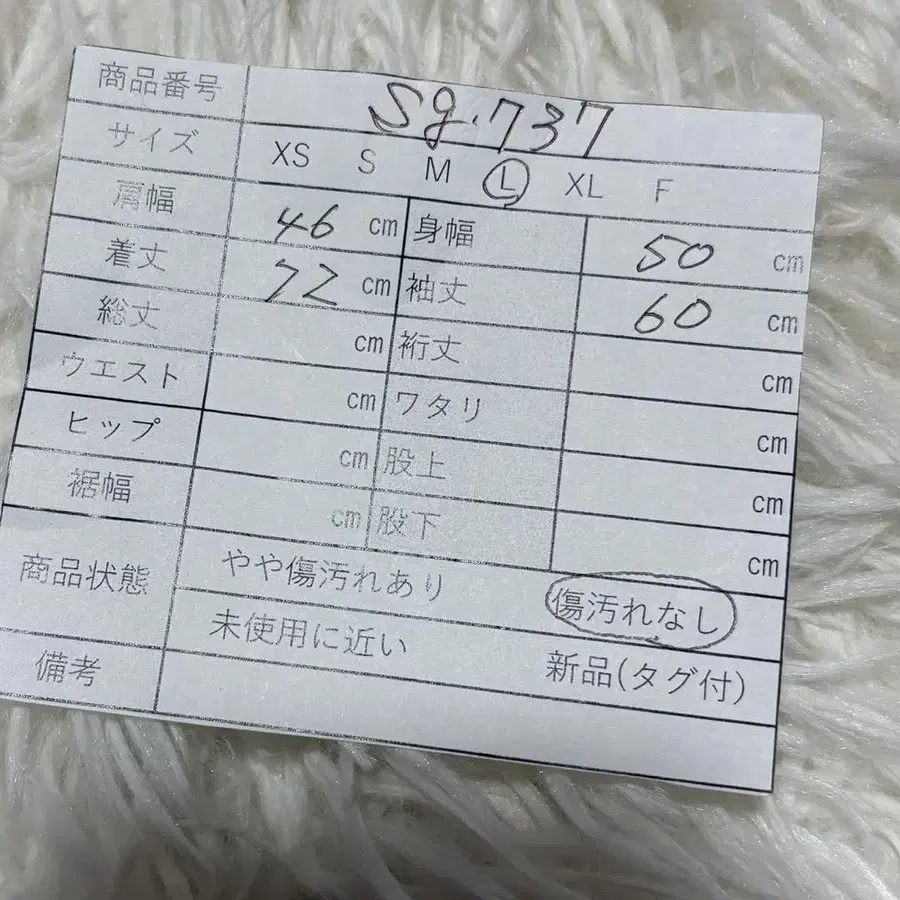 商品番号 Sg.737
サイズ XS S M L XL F
肩幅 46 cm 身幅 50 cm
着丈 72 cm 袖丈 60 cm
総丈 cm 裄丈 cm
ウエスト cm ワタリ cm
ヒップ cm 股上 cm
裾幅 cm 股下 cm
商品状態 やや傷汚れあり 傷汚れなし
未使用に近い 新品(タグ付)
備考